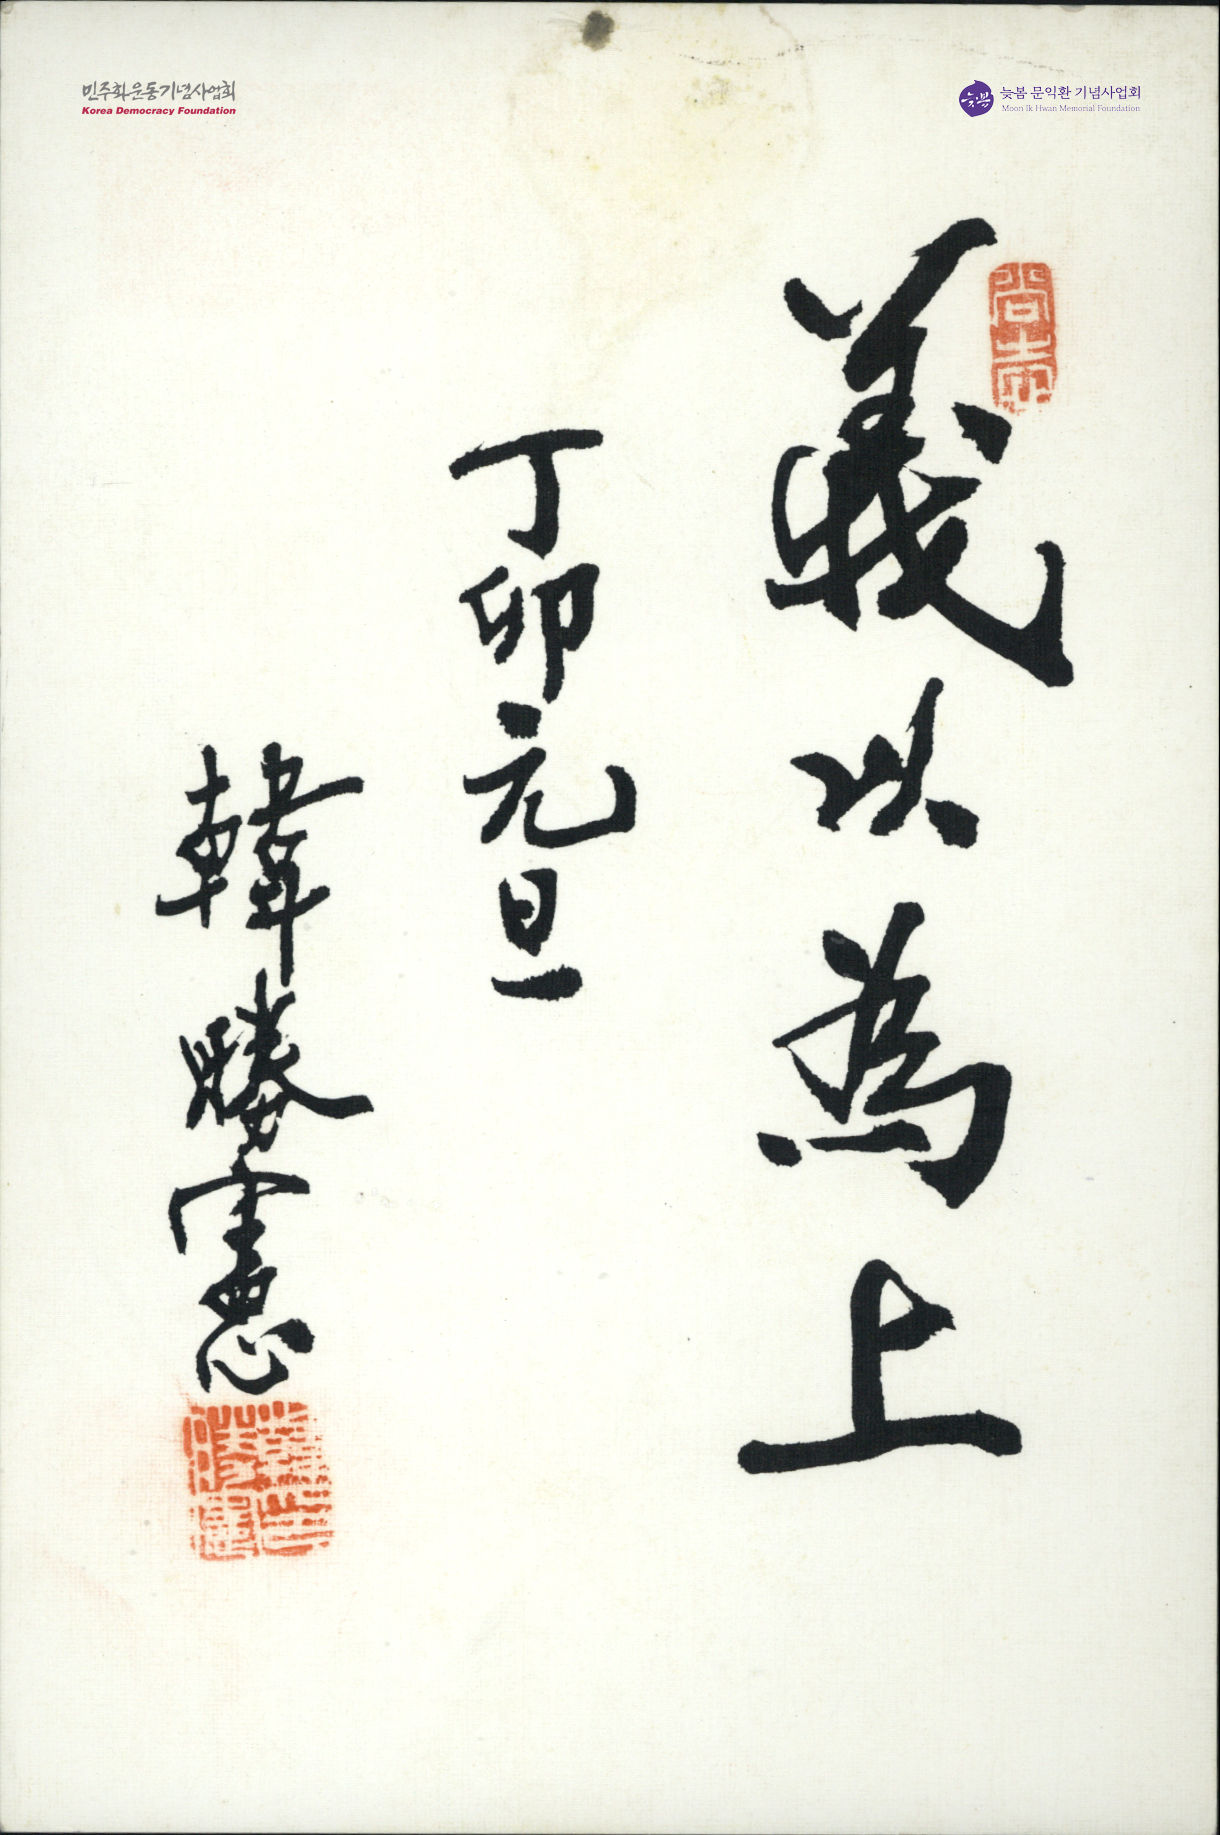 민주화운동기념사업회
Korea Democracy Foundation
늦봄
늦봄 문익환 기념사업회
Moon Ik Hwan Memorial Foundation
義以爲上
丁卯元旦
韓勝憲